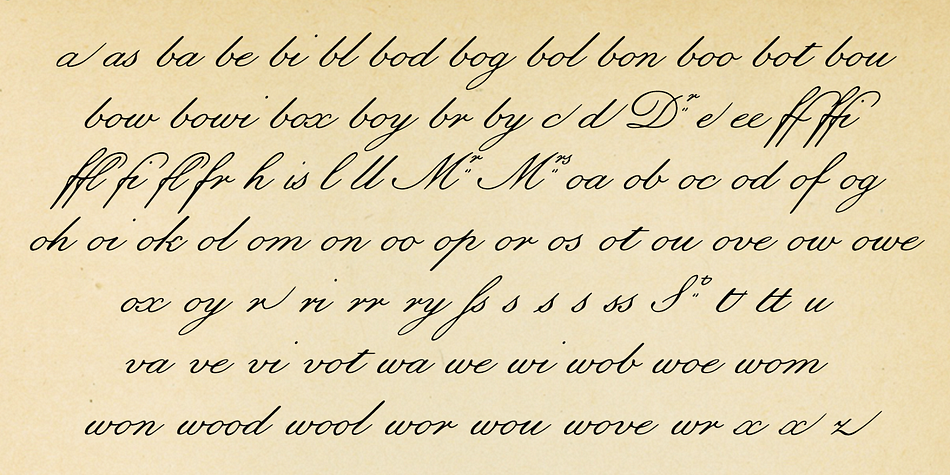 a as ba be bi bl bod bog bol bon boo bot bou
bow bowi box boy br by c d Dr e ee ff ffi
ffl fi fl fr h is l ll Mr Mrs oa ob oc od of og
oh oi ok ol om on oo op or os ot ou ove ow owe
ox oy r ri rr ry ſs s s s ss St t tt u
va ve vi vot wa we wi wob woe wom
won wood wool wor wou wove wr x x z